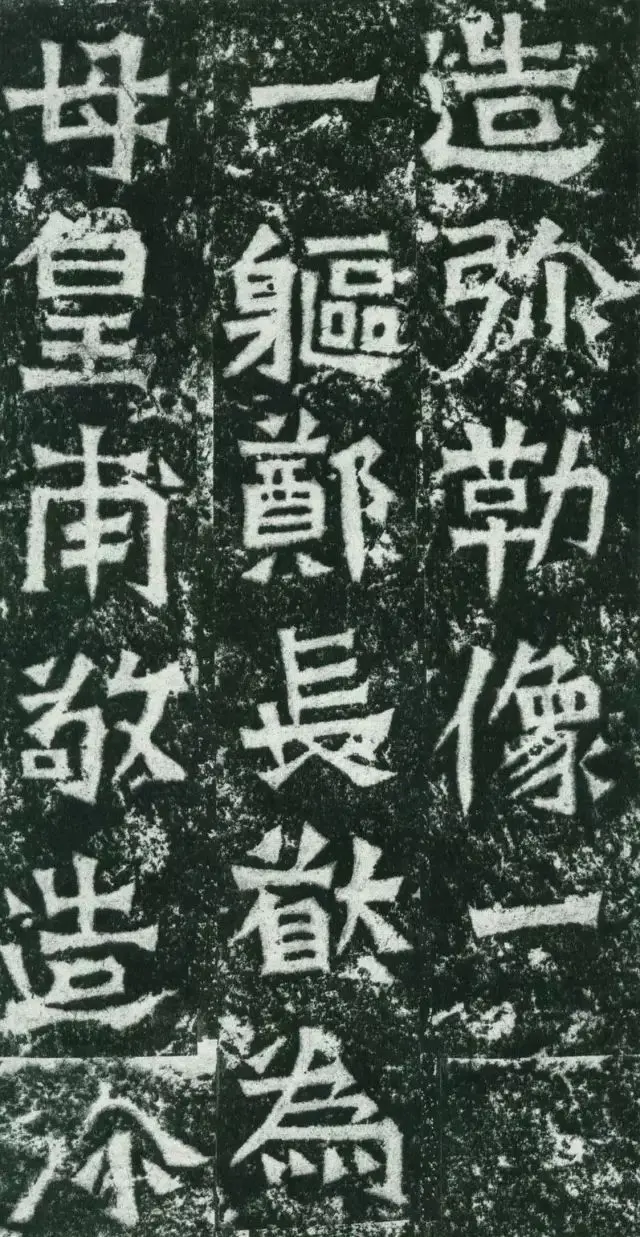 造弥勒像一
一軀鄭長猷為
母皇甫敬造尒